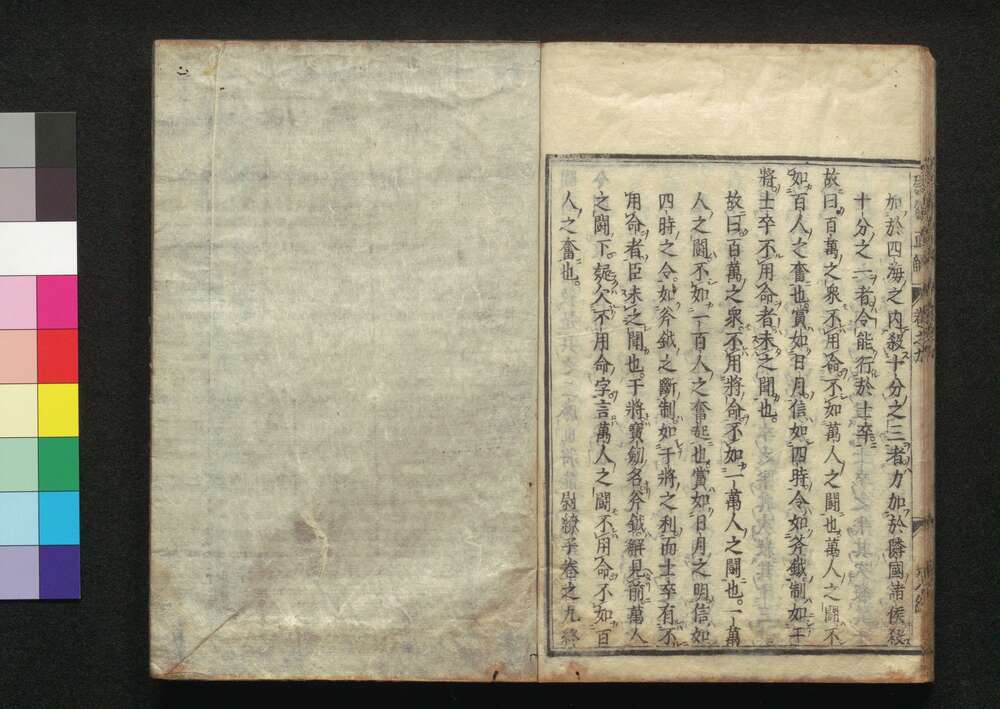 加於四海之内殺十分之三者力加於隣國諸侯殺
十分之一者令能行於士卒
故曰百萬之衆不用命不如萬人之鬪也萬人之鬪不
如百人之奮也賞如日月信如四時令如斧鉞制如干
將士卒不用命者未之聞也
故曰百萬之衆不用將命不如一萬人之鬪也一萬
人之鬪不如一百人之奮起也賞如日月之明信如
四時之令如斧鉞之斷制如干將之利而士卒有不
用命者臣未之聞也干將寶劒名斧鉞解見前萬人
之鬪下疑欠不用命字言萬人之鬪不用命不如百
人之奮也
尉繚子卷之九終
直解
卷之九